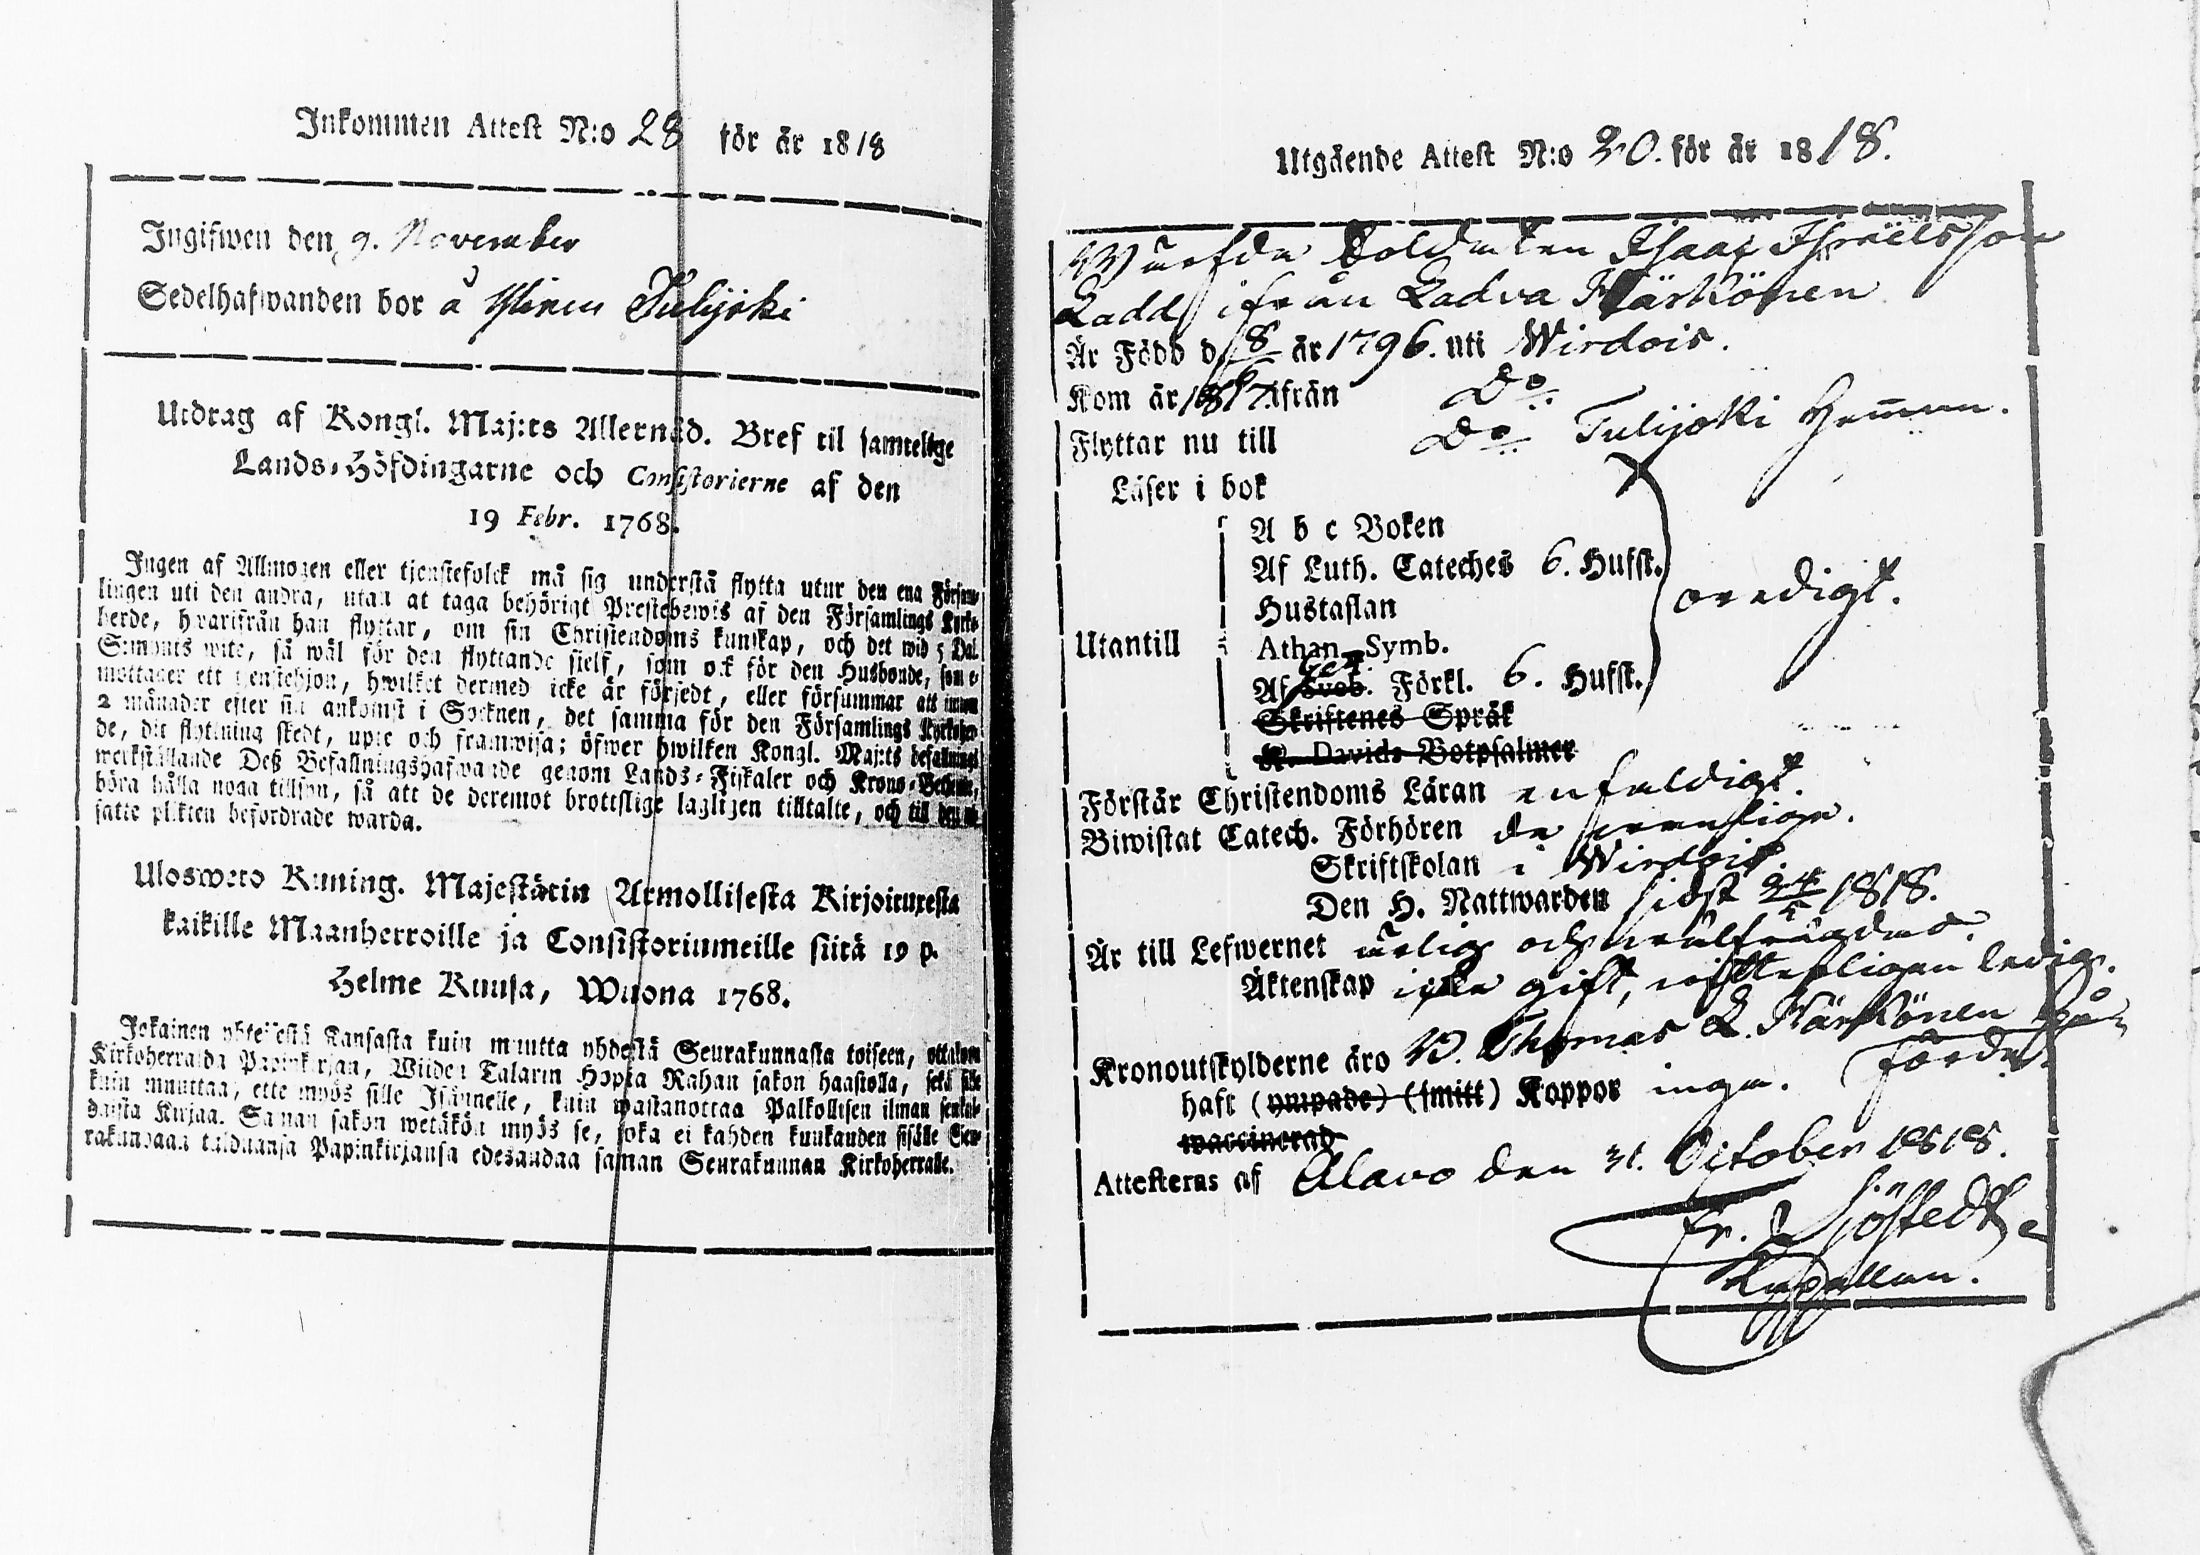 Inkommen Attest N:o 28 för år 1818
Ingifwen den 9. November
Sedelhafwanden bor å Tulijoki
Utdrag af Kongl. Maj:ts Allernåd. Bref til samtelige
Lands-Höfdingarne och Consistorierne af den
19 Febr. 1768.
Ingen af Allmogen eller tjenstefolck må sig understå flytta utur den ena Försam-
lingen uti den andra, utan at taga behörigt Prestebewis af den Församlings Kyrko-
herde, hwarifrån han flyttar, om sin Christendoms kunskap, och det wid 5 Dal.
S:mynts wite, så wäl för den flyttande sjelf, som ock för den Husbonde, som e-
mottager ett tjenstehjon, hwilket dermed icke är försedt, eller försummar att innom
2 månader efter sin ankomst i Socknen, det samma för den Församlings Kyrkoher-
de, dit flyttning skedt, upte och framwisa; öfwer hwilken Kongl. Maj:ts befallnings
werkställande Deß Befallningshafwande genom Lands-Fiskaler och Krono-Betjente,
böra hålla noga tillsyn, så att de deremot brottslige lagligen tilltalte, och till den ut-
satte plikten befordrade warda.
Ulosweto Kuning. Majestätin Armollisesta Kirjoituxesta
kaikille Maanherroille ja Consistoriumeille siitä 19 p.
Helme Kuusa, Wuona 1768.
Jokainen yhteisestä Kansasta kuin muutta yhdestä Seurakunnasta toiseen, ottakoon
Kirkoherralda Papinkirjan, Wiiden Talarin Hopia Rahan sakon haastolla, sekä sille
kuin muuttaa, ette myös sille Isännelle, kuin wastanottaa Palkollisen ilman senkal-
daista Kirjaa. Saman sakon wetäkön myös se, joka ei kahden kuukauden sisälle Seu-
rakundaan tulduansa Papinkirjansa edesandaa saman Seurakunnan Kirkoherralle.
Utgående Attest N:o 20. för år 1818.
Soldaten Isaac Israelsson
Ladd ifrån Ladva Härkönen
Är Född d. 8/6 år 1796. uti Wirdois.
Kom år 1817 ifrån Do
Flyttar nu till Do Tulijoki Hemman.
Läser i bok
A b c Boken
Af Luth. Cateches 6. Hufst.
Hustaflan
Utantill Athan. Symb. oredigt.
Af Sveb. Förkl. 6. Hufst.
Skriftenes Språk
K. Davids Botpsalmer
Förstår Christendoms Läran enfaldigt.
Biwistat Catech. Förhören de
Skriftskolan i Wirdois.
Den H. Nattwarden sidst 24/5 1818.
Är till Lefwernet ärlig och wälfrägdad.
Äktenskap icke gift, ledig.
Kronoutskylderne äro W. Thomas L. Härkönen på-
förde.
haft (ympade) (smitt) Koppor inga.
waccinerad
Attesteras af Alavo den 31. October 1818.
Fr. Sjöstedt
Kapellan.